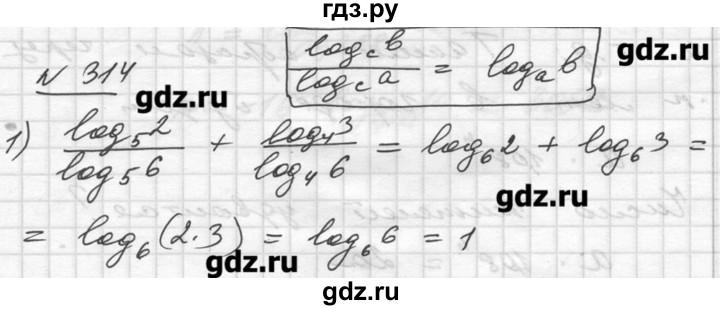 гдз.ру
log_c b / log_c a = log_a b
N 314
gdz.ru
1) log_5 2 / log_5 6 + log_4 3 / log_4 6 = log_6 2 + log_6 3 =
gdz.ru
= log_6 (2·3) = log_6 6 = 1
gdz.ru
gdz.ru